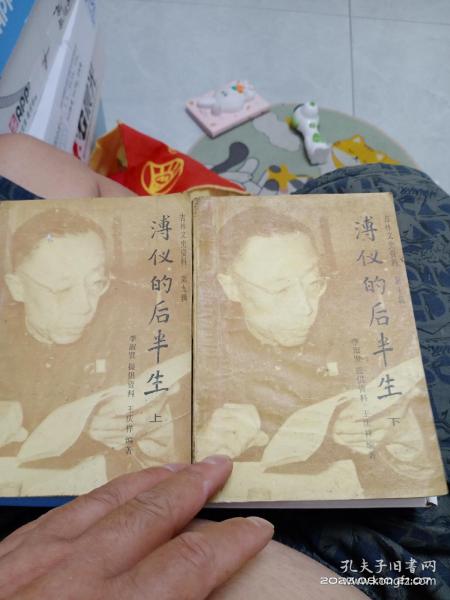 吉林文史资料 第九辑
溥仪的后半生
上
李淑贤 提供资料 王庆祥 编著
吉林文史资料 第十辑
溥仪的后半生
下
李淑贤 提供资料 王庆祥 编著
孔夫子旧书网
www.kongfz.com